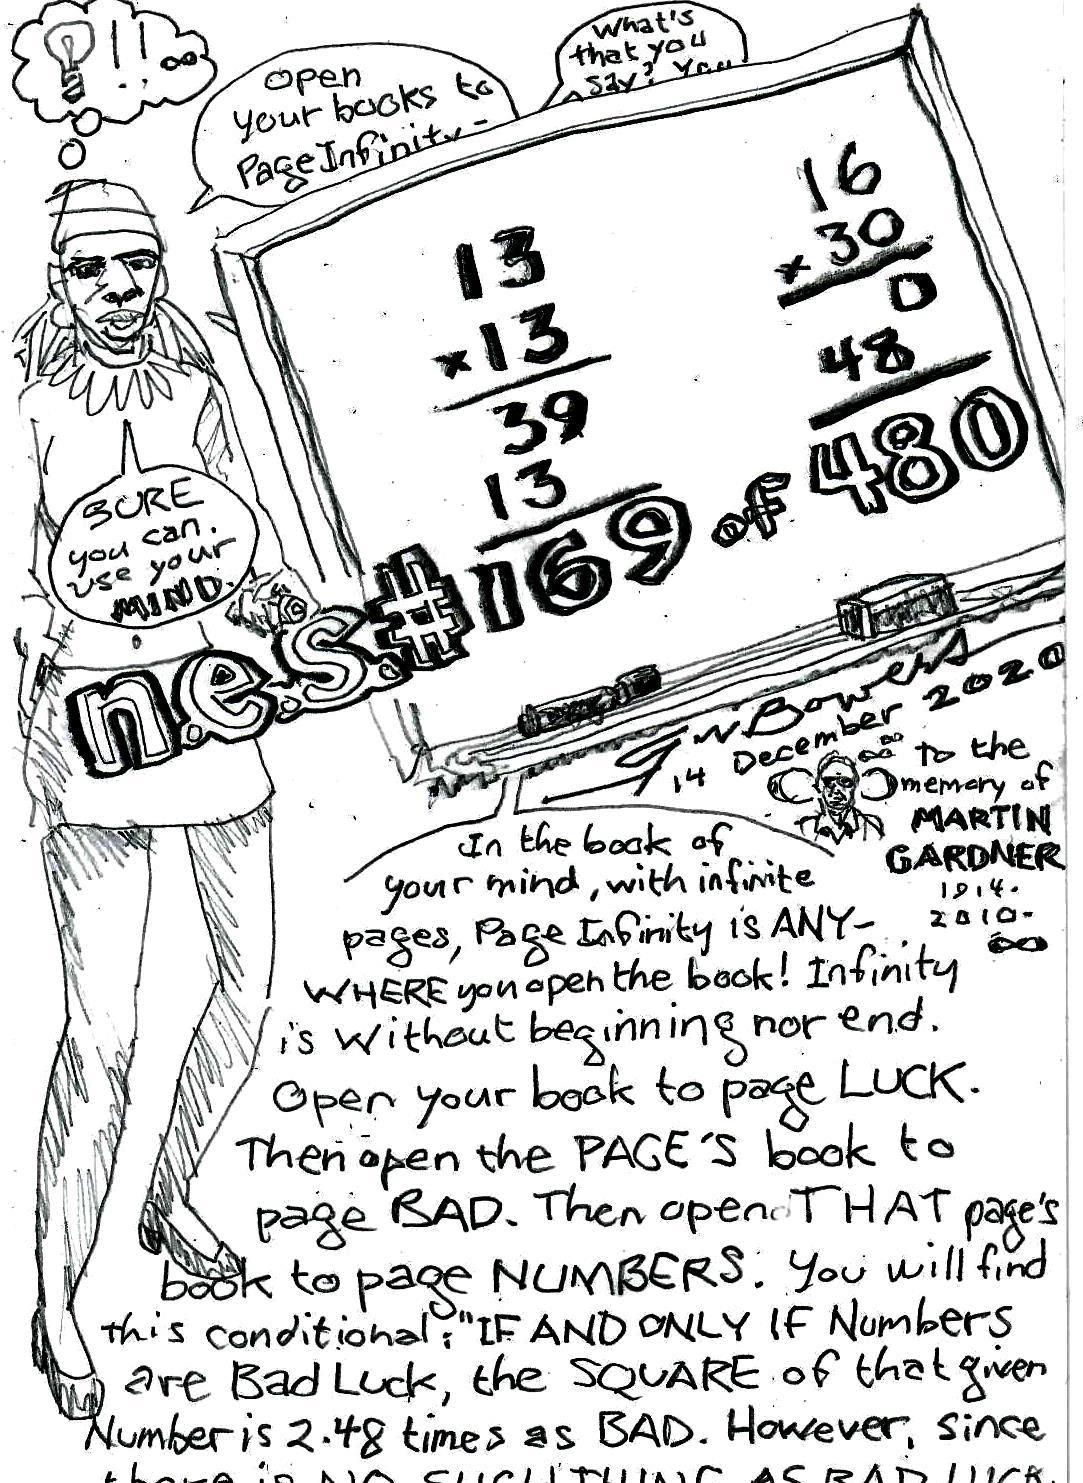 !!
∞
Open
your books to
Page Infinity-
What's
that you
say? You
13
×13
39
13
16
×30
0
48
n.e.s.#169 of 480
SURE
you can.
use your
MIND.
Bowers
14 December 2020
To the
memory of
MARTIN
GARDNER
1914-
2010-
∞
In the book of
your mind, with infinite
pages, Page Infinity is ANY-
WHERE you open the book! Infinity
is without beginning nor end.
Open your book to page LUCK.
Then open the PAGE'S book to
page BAD. Then open THAT page's
book to page NUMBERS. You will find
this conditional: "IF AND ONLY IF Numbers
are Bad Luck, the SQUARE of that given
Number is 2.48 times as BAD. However, since
there is NO SUCH THING AS BAD LUCK.